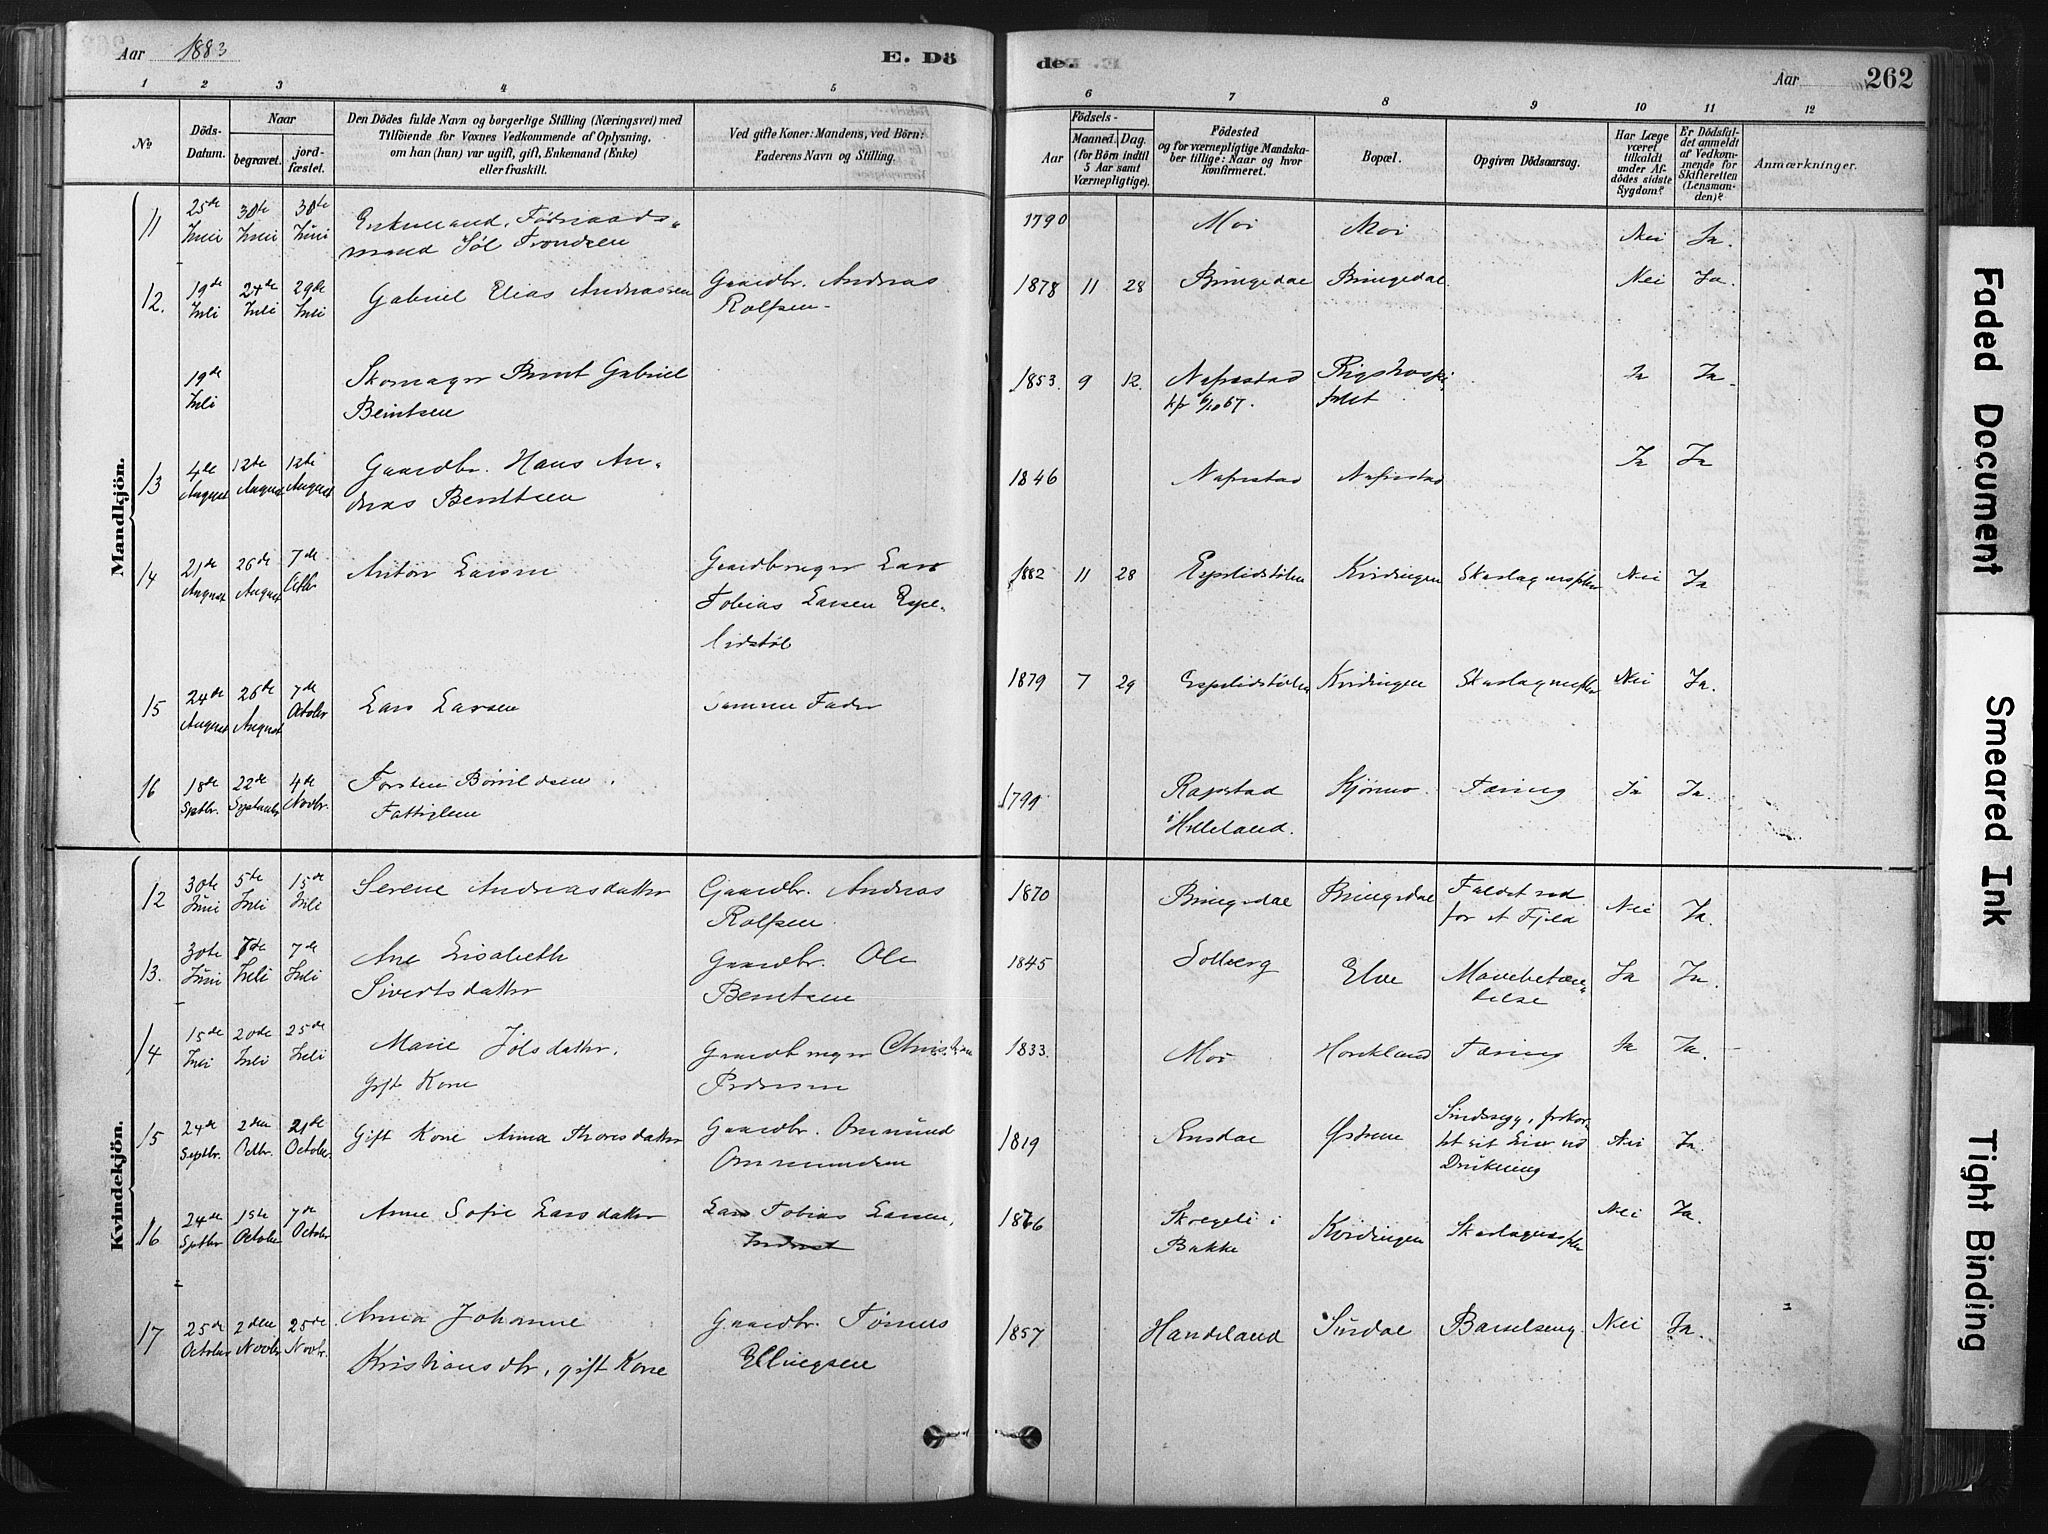 Aar 1883
E. Dö
de.
Aar
262
1 2 3 4 5 6 7 8 9 10 11 12
No
Döds-
Datum.
Naar
begravet.
jord-
fæstet.
Den Dödes fulde Navn og borgerlige Stilling (Næringsvei) med
Tilföiende for Voxnes Vedkommende af Oplysning,
om han (hun) var ugift, gift, Enkemand (Enke)
eller fraskilt.
Ved gifte Koner: Mandens, ved Börn:
Faderens Navn og Stilling.
Födsels-
Aar
Maaned. Dag.
(for Börn indtil
5 Aar samt
Værnepligtige).
Födested
og for værnepligtige Mandska-
ber tillige: Naar og hvor
konfirmeret.
Bopæl.
Opgiven Dödsaarsag.
Har Læge
været
tilkaldt
under Af-
dödes sidste
Sygdom?
Er Dödsfal-
det anmeldt
af Vedkom-
mende for
Skifteretten
(Lensman-
den)?
Anmærkninger.
Mandkjön.
11 25de Juni 30te Juni 30te Juni Enkemand, Födraads-
mand Jöl Trondsen 1790 Moi Moi Nei Ja.
12. 19de Juli 24de Juli 29de Juli Gabriel Elias Andreassen Gaardbr. Andreas
Rolfsen 1878 11 28 Bringedal Bringedal Nei Ja.
19de Juli Skomager Bernt Gabriel
Berntsen 1853. 9 12. Nafrestad
kf 6/10 67. Rigshospi
talet Ja Ja.
13 4de August 12te August 12te August Gaardbr. Hans An-
dreas Berntsen 1846 Nafrestad Nafrestad Ja Ja
14 21de August 26de August 7de Octbr Anton Larsen Gaardbruger Lars
Tobias Larsen Espe-
lidstöl 1882 11 28 Espelidstölen Kvidingen Skarlagensfeber Nei Ja
15 24de August 26de August 7de October Lars Larsen Samme Fader 1879 7 29 Espelidstölen Kvidingen Skarlagensfeber Nei Ja.
16 18de Septbr. 22de September 4de Novbr. Torsten Börildsen.
Fattiglem 1799 Rapstad
i Helleland. Kjörmo Tæring Ja Ja.
Kvindekjön.
12 30te Juni 5te Juli 15de Juli Serene Andreasdatter Gaardbr. Andreas
Rolfsen. 1870 Bringedal Bringedal Faldet ud
for et Fjeld Nei Ja.
13. 30te Juni 7de Juli 7de Juli Ane Lisabeth
Sivertsdatter Gaardbr. Ole
Berntsen 1845 Solberg Elve Mavebetæn-
delse Ja Ja.
14 15de Juli 20de Juli 25de Juli Marie Jölsdatter.
Gift Kone Gaardbruger Christian
Pedersen 1833. Moi Houkland Tæring Ja Ja.
15 24de Septbr. 2den Octbr. 21de October Gift Kone Anna Thoresdatter Gaardbr. Ommund
Ommundsen 1819 Øsdrene Sindssyg, forkor-
tet sit Liv ved
Drukning Nei Ja.
16 24de Septbr 1ste October 7de October Anne Sofie Larsdatter Lars Tobias Larsen, 1866 Skregeli i
Bakke Kvidingen Skarlagensfeber Nei Ja.
17 25de October 2den Novbr 25de Novbr. Anna Johanne
Kristiansdtr, gift Kone Gaardbr. Tönnes
Ellingsen 1857 Handeland Sirdal Barselseng Nei Ja.
Faded Document
Smeared Ink
Tight Binding